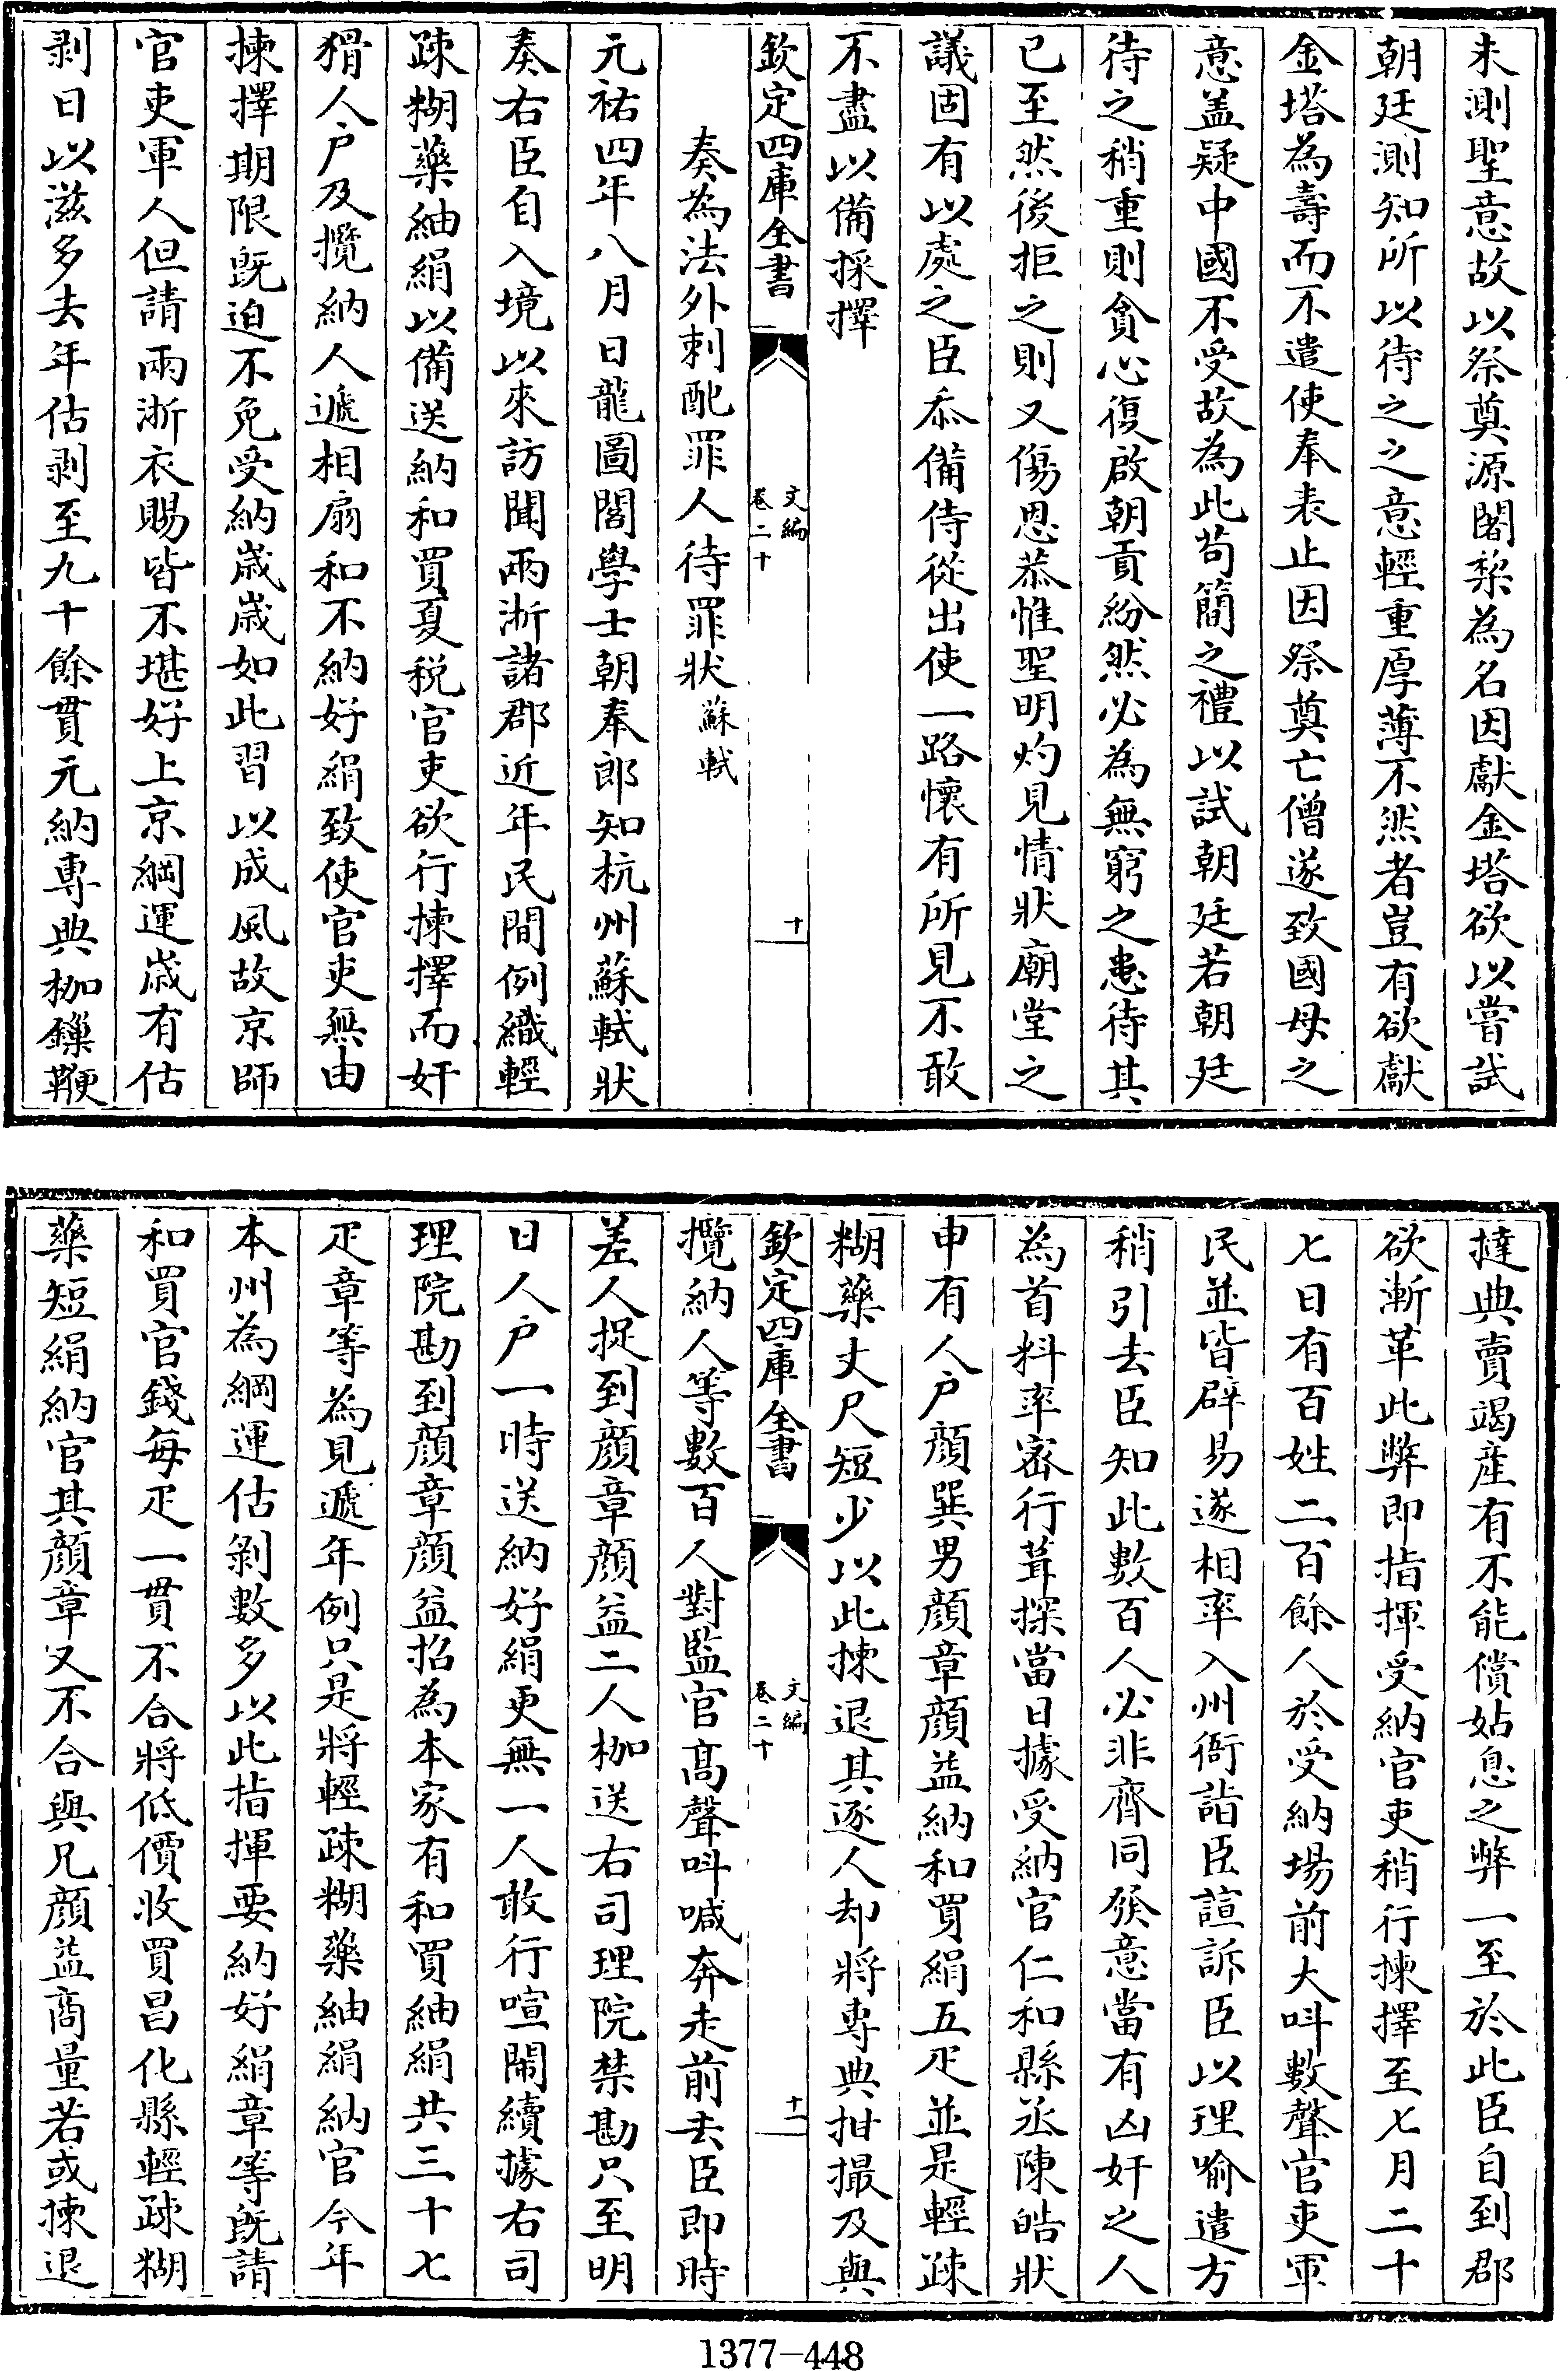 未測聖意故以祭奠源闍棃為名因獻金塔欲以嘗試
朝廷測知所以待之之意輕重厚薄不然者豈有欲獻
金塔為壽而不遣使奉表止因祭奠亡僧遂致國母之
意盖疑中國不受故為此苟簡之禮以試朝廷若朝廷
待之稍重則貪心復啟朝貢紛然必為無窮之患待其
已至然後拒之則又傷恩恭惟聖明灼見情狀廟堂之
議固有以處之臣忝備侍從出使一路懷有所見不敢
不盡以備採擇
欽定四庫全書
文編
卷二十
十
奏為法外刺配罪人待罪狀蘇軾
元祐四年八月日龍圖閣學士朝奉郎知杭州蘇軾狀
奏右臣自入境以來訪聞兩浙諸郡近年民間例織輕
疎糊藥紬絹以備送納和買夏税官吏欲行揀擇而奸
猾人户及攬納人遞相扇和不納好絹致使官吏無由
揀擇期限既迫不免受納嵗嵗如此習以成風故京師
官吏軍人但請兩浙衣賜皆不堪好上京綱運嵗有估
剥日以滋多去年估剥至九十餘貫元納專典枷鏁鞭
撻典賣竭產有不能償姑息之弊一至於此臣自到郡
欲漸革此弊即指揮受納官吏稍行揀擇至七月二十
七日有百姓二百餘人於受納場前大呌數聲官吏軍
民並皆辟易遂相率入州衙詣臣諠訴臣以理喻遣方
稍引去臣知此數百人必非齊同發意當有凶奸之人
為首料率密行葺探當日據受納官仁和縣丞陳皓狀
申有人户顔巽男顔章顔益納和買絹五疋並是輕疎
糊藥丈尺短少以此揀退其逐人却將專典拑撮及與
欽定四庫全書
文編
卷二十
十一
攬納人等數百人對監官髙聲呌喊奔走前去臣即時
差人捉到顔章顔益二人枷送右司理院禁勘只至明
日人户一時送納好絹更無一人敢行喧閙續據右司
理院勘到顔章顔益招為本家有和買紬絹共三十七
疋章等為見遞年例只是將輕疎糊藥紬絹納官今年
本州為綱運估剝數多以此指揮要納好絹章等既請
和買官錢每疋一貫不合將低價收買昌化縣輕疎糊
藥短絹納官其顔章又不合與兄顔益商量若或揀退
1377-448